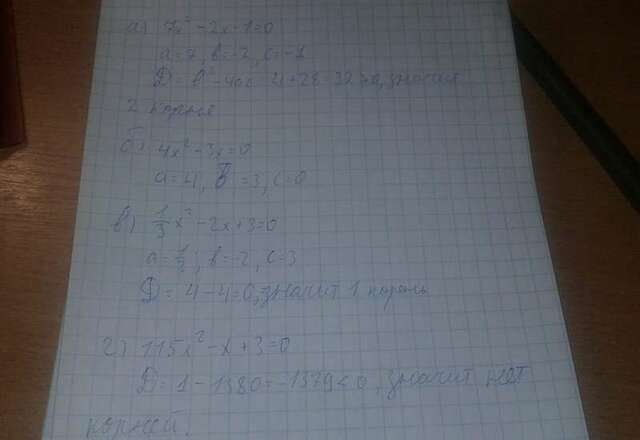 а) 7x² - 2x - 1 = 0
a = 7, b = -2, c = -1
D = b² - 4ac 4 + 28 = 32 > 0, значит
2 корня
б) 4x² - 3x = 0
a = 4, b = 3, c = 0
в) 1/3 x² - 2x + 3 = 0
a = 1/3, b = -2, c = 3
D = 4 - 4 = 0, значит 1 корень
г) 115x² - x + 3 = 0
D = 1 - 1380 = -1379 < 0, значит нет
корней.